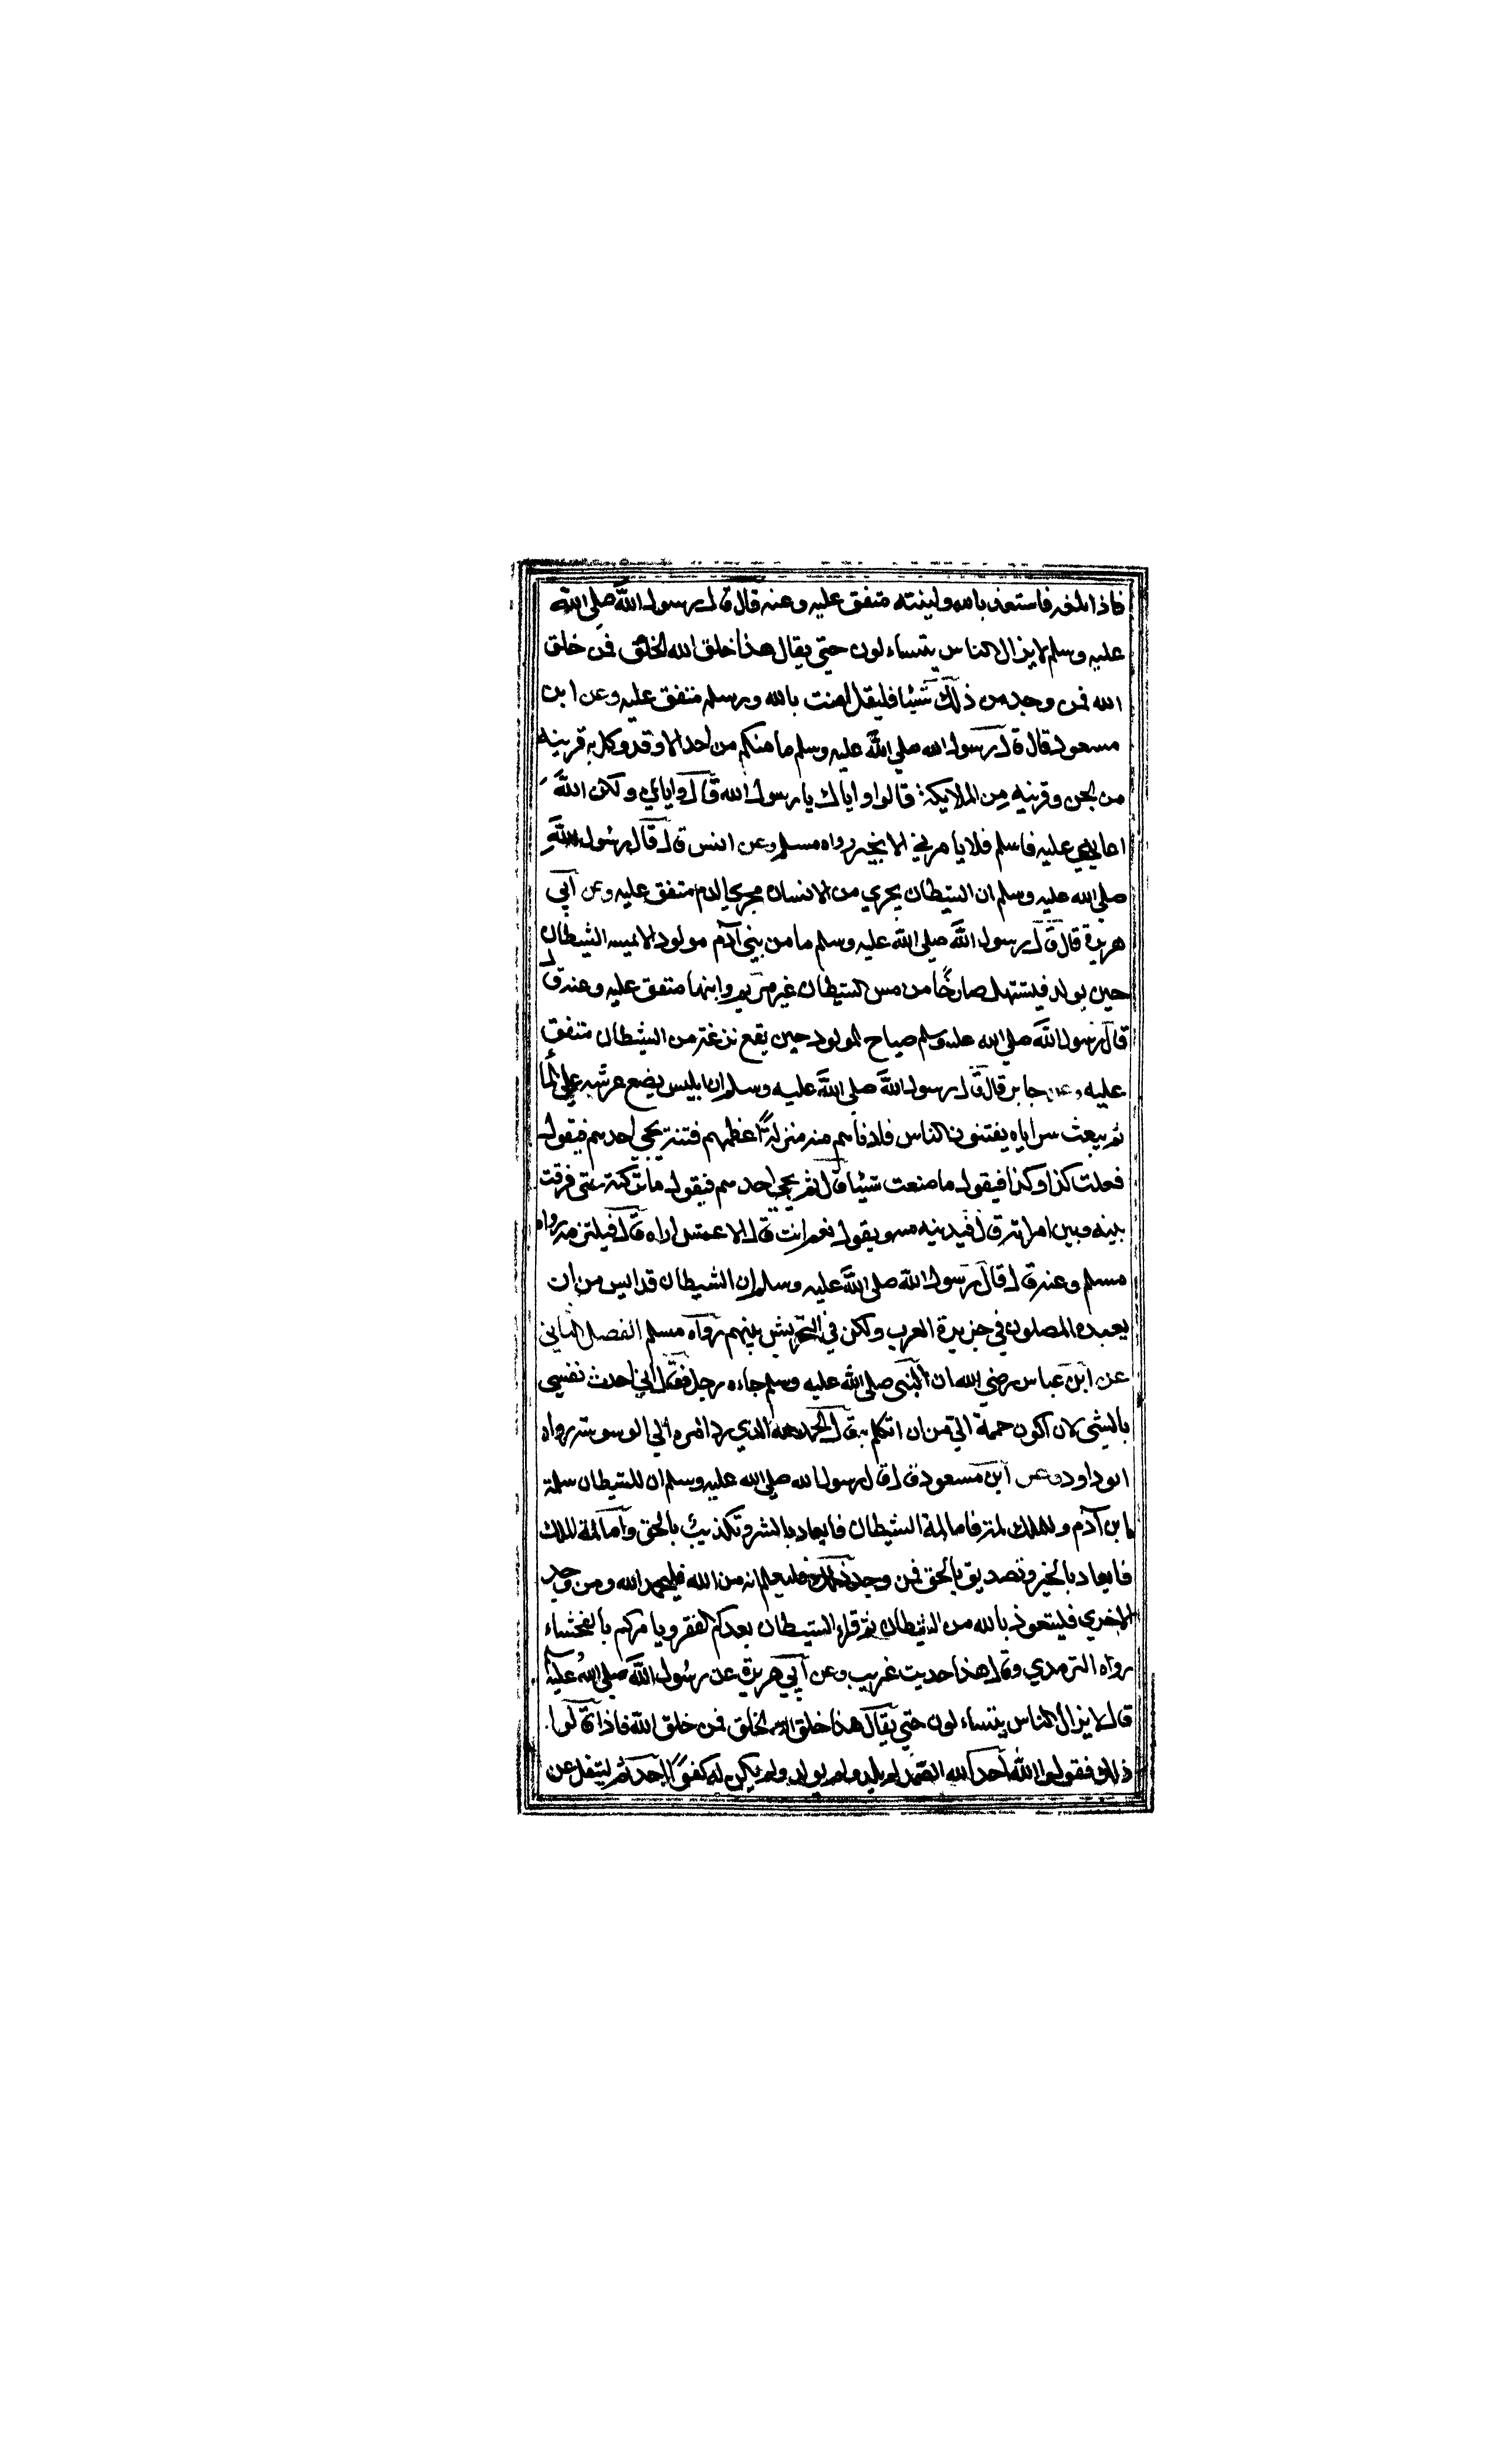 فاذا بلغه فاستعذ بالله ولينته متفق عليه وعنه قال قال رسول الله صلى الله
عليه وسلم لا يزال الناس يتساءلون حتى يقال هذا خلق الله الخلق فمن خلق
الله فمن وجد من ذلك شيئا فليقل امنت بالله ورسله متفق عليه وعن ابن
مسعود قال قال رسول الله صلي الله عليه وسلم ما منكم من احد الا وقد وكل به قرينه
من الجن وقرينه من الملايكة قالوا واياك يا رسول الله قال واياي ولكن الله
اعانني عليه فاسلم فلا يامرني الا بخير رواه مسلم وعن انس قال قال رسول الله
صلي الله عليه وسلم ان الشيطان يجري من الانسان مجري الدم متفق عليه وعن ابي
هريرة قال قال رسول الله صلي الله عليه وسلم ما من بني آدم مولود الا يمسه الشيطان
حين يولد فيستهل صارخًا من مس الشيطان غير مريم وابنها متفق عليه وعنه قال
قال رسول الله صلي الله عليه وسلم صياح المولود حين يقع نزغة من الشيطان متفق
عليه وعن جابر قال قال رسول الله صلي الله عليه وسلم ان ابليس يضع عرشه علي الما
ثم يبعث سراياه يفتنون الناس فادناهم منه منزلةً اعظمهم فتنة يجي احدهم فيقول
فعلت كذا وكذا فيقول ما صنعت شيئا قال ثم يجي احدهم فيقول ما تركته حتى فرقت
بينه وبين امراته قال فيدنيه منه ويقول نعم انت قال الاعمش اراه قال فيلتزمه رواه
مسلم وعنه قال قال رسول الله صلي الله عليه وسلم ان الشيطان قد ايس من ان
يعبده المصلون في جزيرة العرب ولكن في التحريش بينهم رواه مسلم الفصل الثاني
عن ابن عباس رضي الله ان النبي صلي الله عليه وسلم جاءه رجل فقال اني احدث نفسي
بالشي لان اكون حممة الي من ان اتكلم به قال الحمد لله الذي رد امره الي الوسوسة رواه
ابو داود وعن ابن مسعود قال قال رسول الله صلي الله عليه وسلم ان للشيطان لمة
بابن آدم وللملك لمة فاما لمة الشيطان فايعاد بالشر وتكذيب بالحق واما لمة الملك
فايعاد بالخير وتصديق بالحق فمن وجد ذلك فليعلم انه من الله فليحمد الله ومن وجد
الاخري فليتعوذ بالله من الشيطان ثم قراء الشيطان يعدكم الفقر ويامركم بالفحشاء
رواه الترمذي وقال هذا حديث غريب وعن ابي هريرة عن رسول الله صلي الله عليه وسلم
قال لا يزال الناس يتساءلون حتي يقال هذا خلق الله الخلق فمن خلق الله فاذا قالوا
ذلك فقولوا الله احد الله الصمد لم يلد ولم يولد ولم يكن له كفوًا احد ثم ليتفل عن